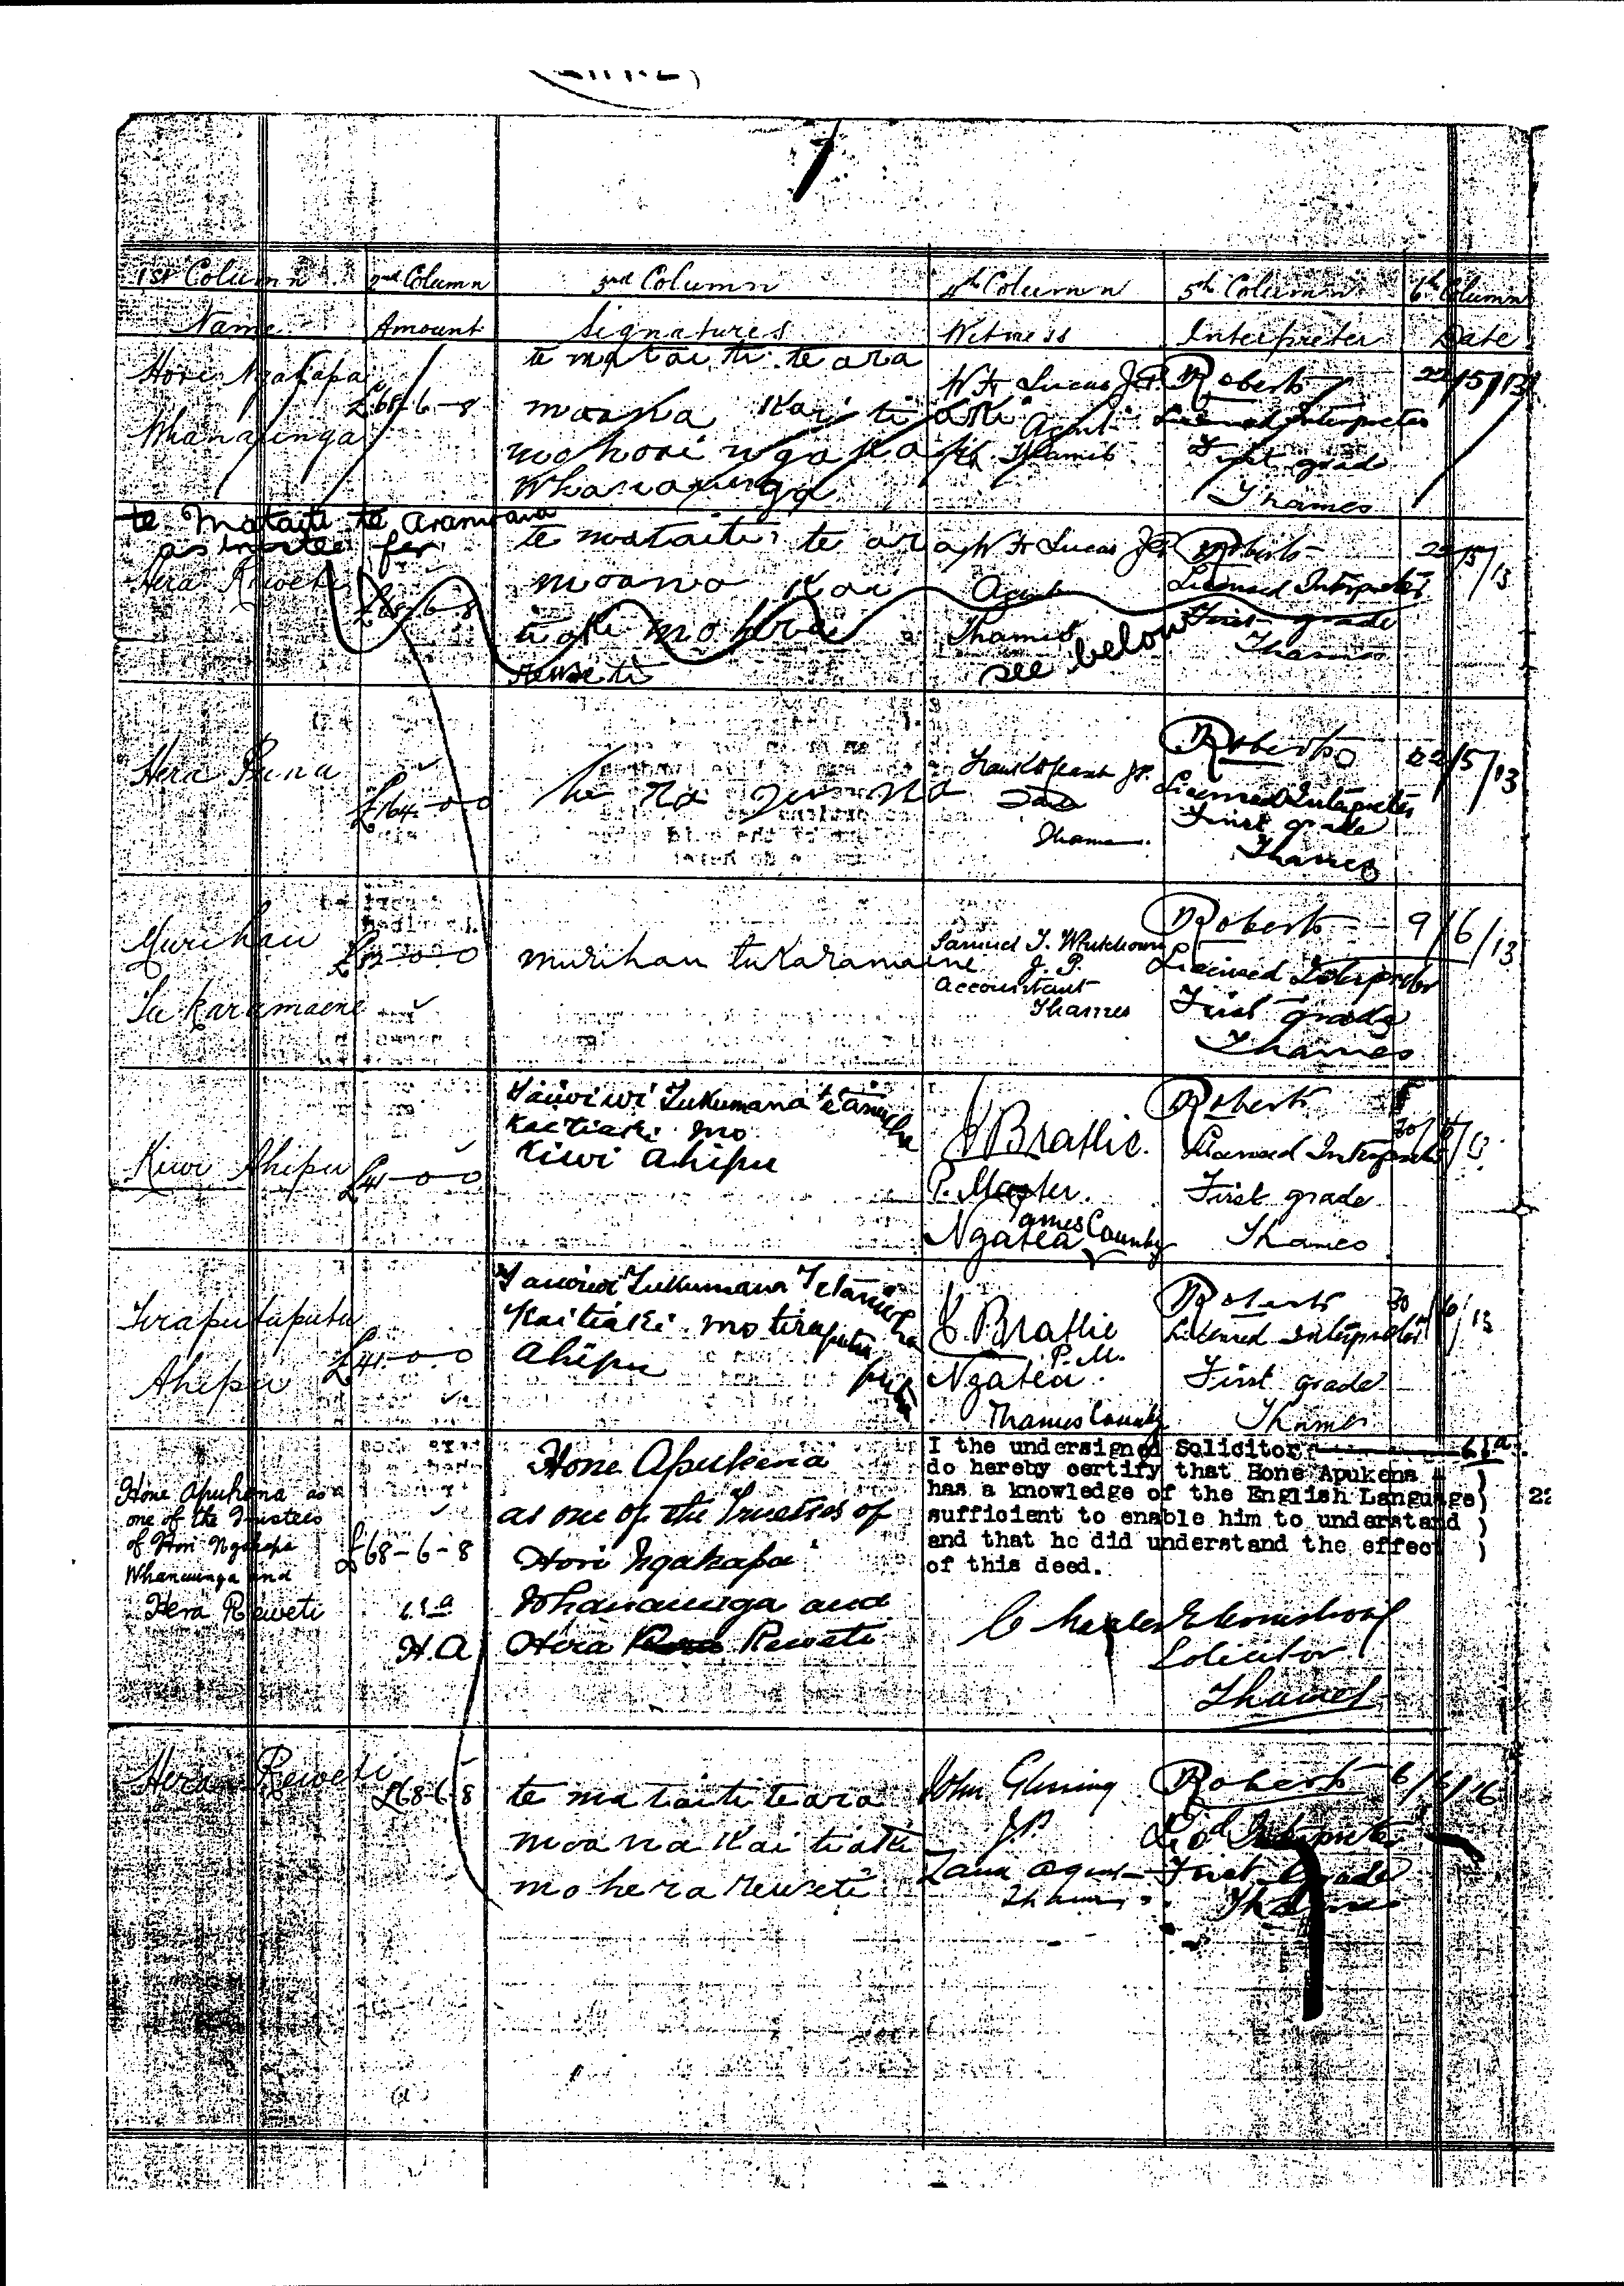 1st Column 2nd Column 3rd Column 4th Column 5th Column 6th Column
Name Amount Signatures Witness Interpreter Date
Hori Ngakapa
Whanaunga
£68-6-8
te mataiti te ara
moana Kai tiaki
mo hori ngakapa
Whanaunga
W H Lucas J.P.
Agent
Thames
Roberts
Licensed Interpreter
First grade
Thames
22/5/13
te Mataiti te Aramoana
as trustee for
Hera Reweti
£68-6-8
te mataiti te ara
moana Kai
tiaki mo hera
Reweti
W H Lucas J.P.
Agent
Thames
see below
Roberts
Licensed Interpreter
First grade
Thames
22/5/13
Hera Puna
£164-0-0
J.P.
Thames
Roberts
Licensed Interpreter
First grade
Thames
22/5/13
Murihau
Tukaramaene
£82-0-0
murihau tukaramaene
Samuel J.
J. P.
Accountant
Thames
Roberts
Licensed Interpreter
First grade
Thames
9/6/13
Kiwi Ahipu
£41-0-0
Tukumana
Kaitiaki mo
Kiwi Ahipu
Brattie.
P. Master.
Ngatea
Thames County
Roberts
Licensed Interpreter
First grade
Thames
30/6/13
Tiraputuputu
Ahipu
£41-0-0
Tukumana
Kaitiaki mo tiraputu
putu
Ahipu
Brattie
P.M.
Ngatea.
Thames County
Roberts
Licensed Interpreter
First grade
Thames
30/6/13
Hone Apukena as
one of the Trustees
of Hori Ngakapa
Whanaunga and
Hera Reweti
£68-6-8
H.A
Hone Apukena
as one of the Trustees of
Hori Ngakapa
Whanaunga and
Hera Reweti
I the undersigned Solicitor
do hereby certify that Hone Apukena
has a knowledge of the English Language
sufficient to enable him to understand
and that he did understand the effect
of this deed.
22
Solicitor
Thames
Hera Reweti
£68-6-8
te mataiti te ara
moana Kai tiaki
mo hera reweti
John
J.P.
Land Agent
Thames
Roberts
Licd Interpreter
First Grade
Thames
6/6/16